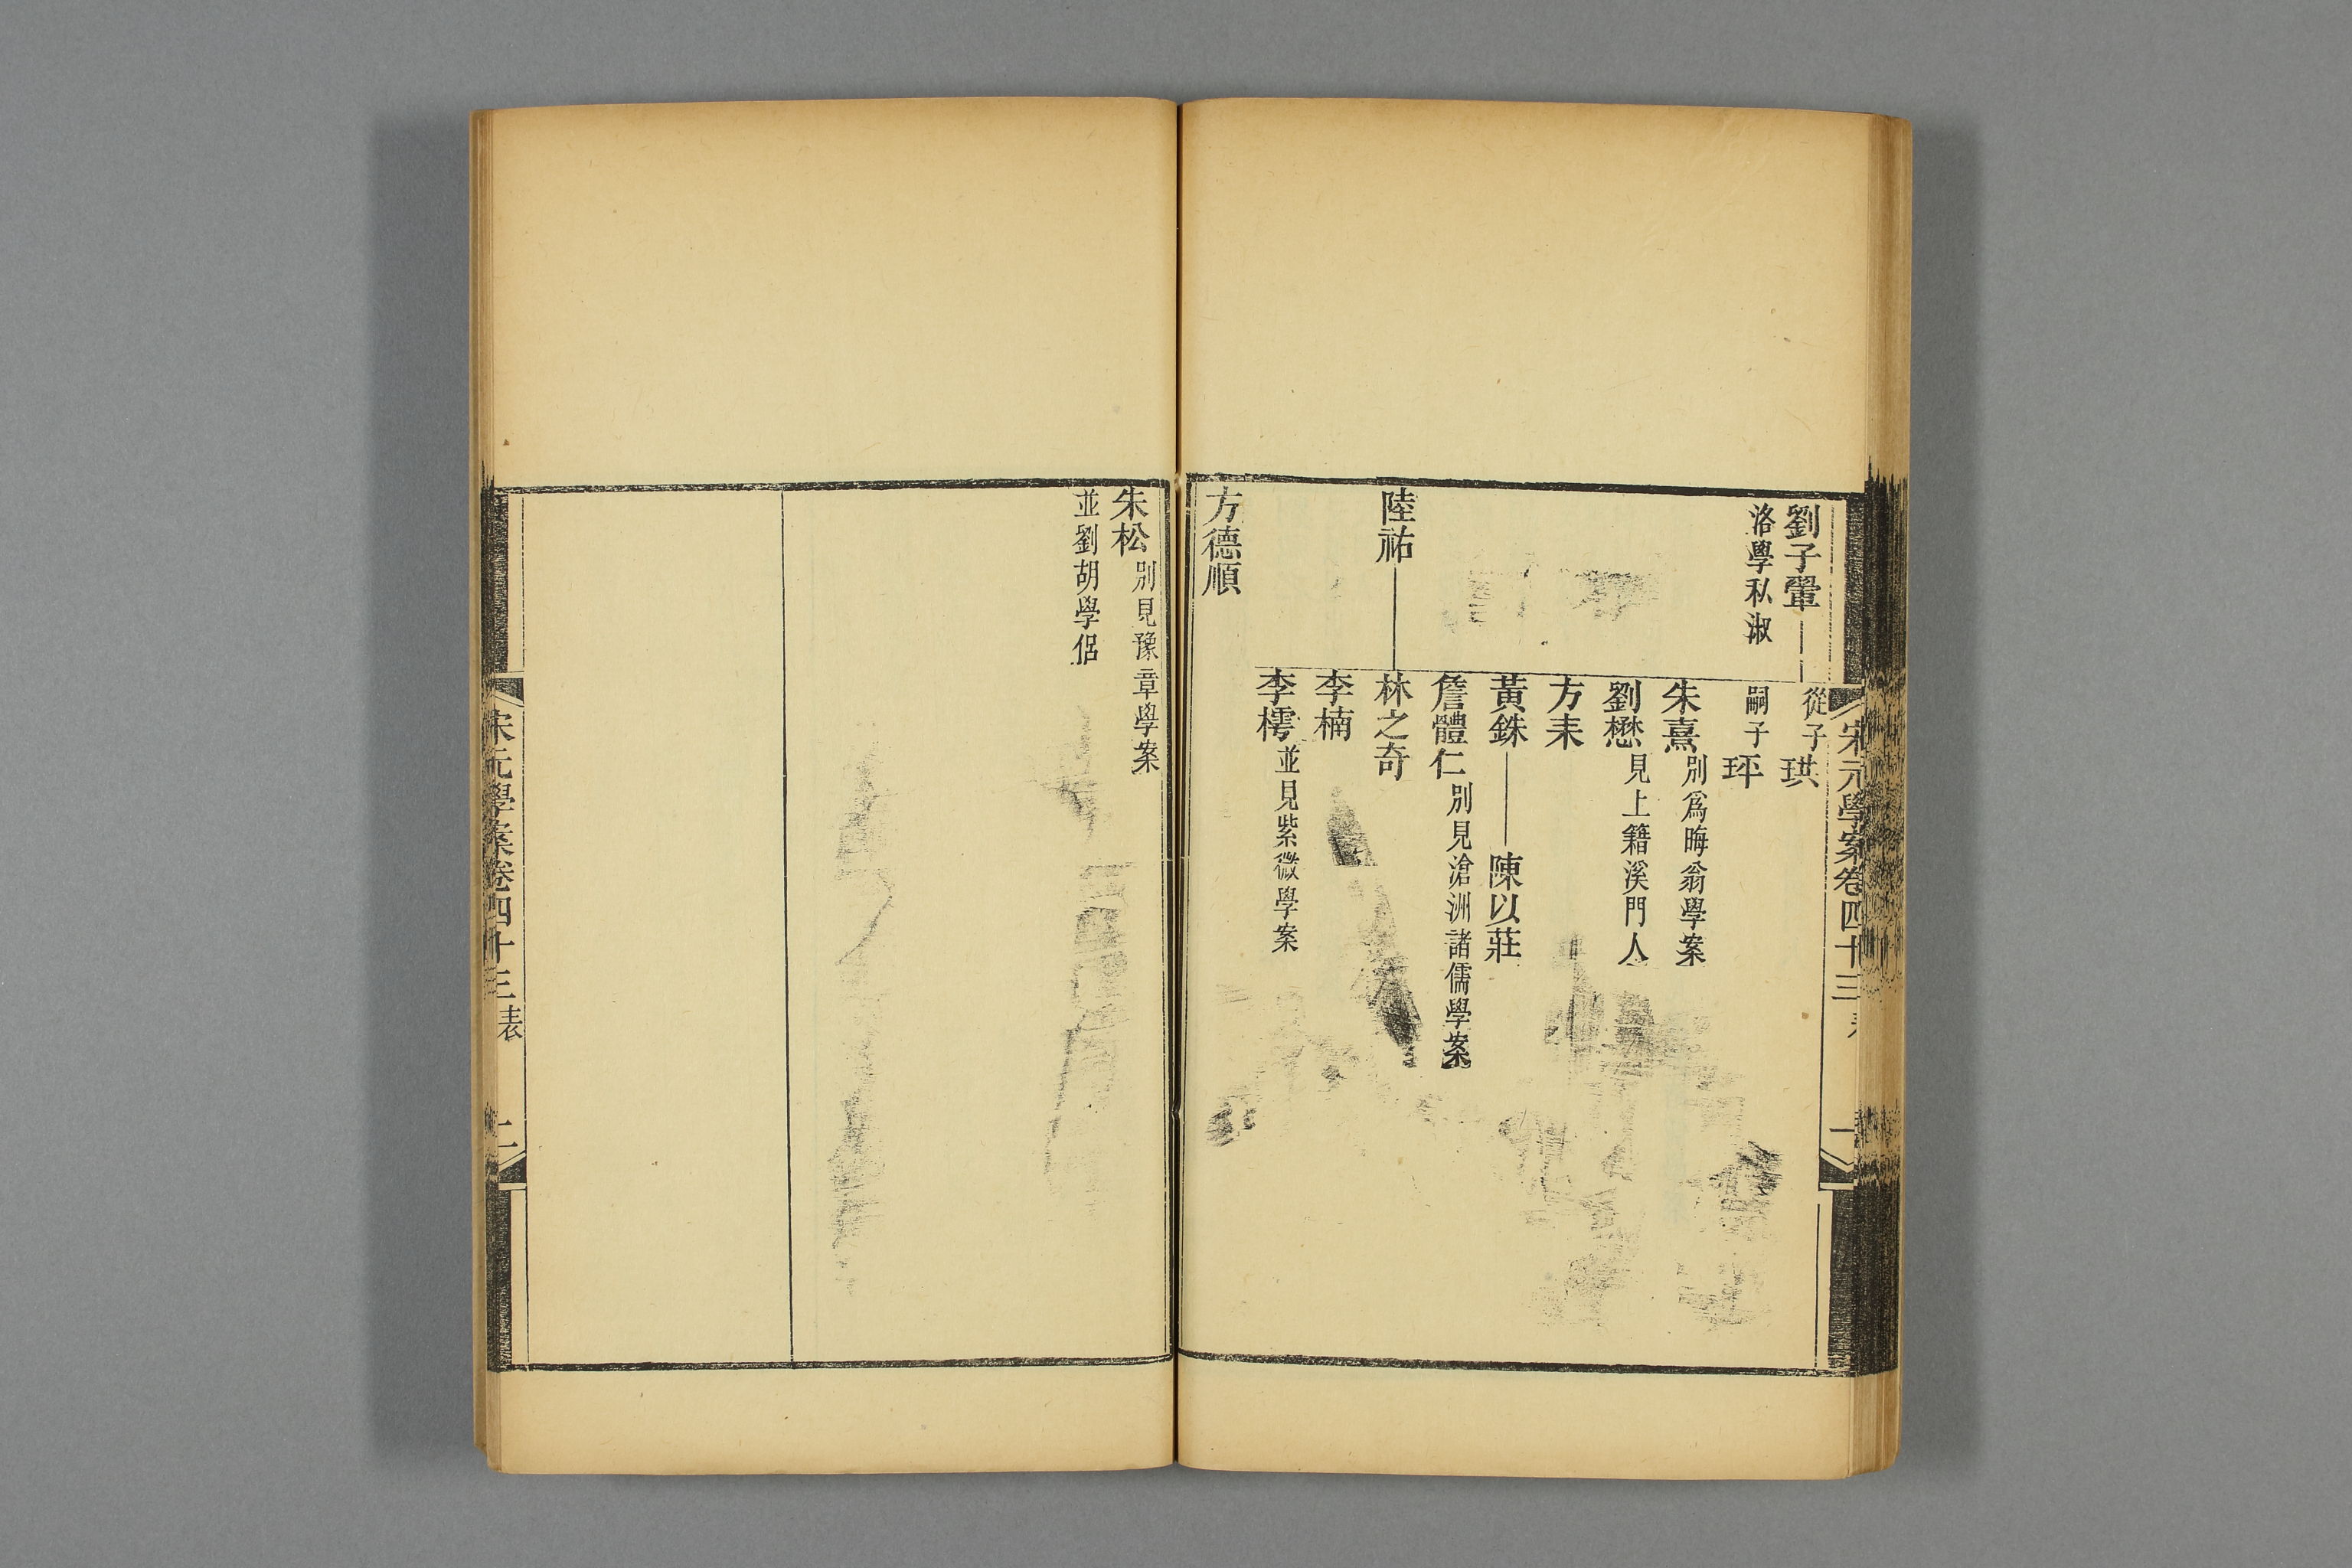 宋元學案卷四十三
一
劉子翬
洛學私淑
從子珙
嗣子玶
朱熹別爲晦翁學案
劉懋見上籍溪門人
方耒
黃銖
陳以莊
詹體仁別見滄洲諸儒學案
陸祐
林之奇
李楠
李樗並見紫微學案
方德順
朱松別見豫章學案
並劉胡學侶
宋元學案卷四十三表
二